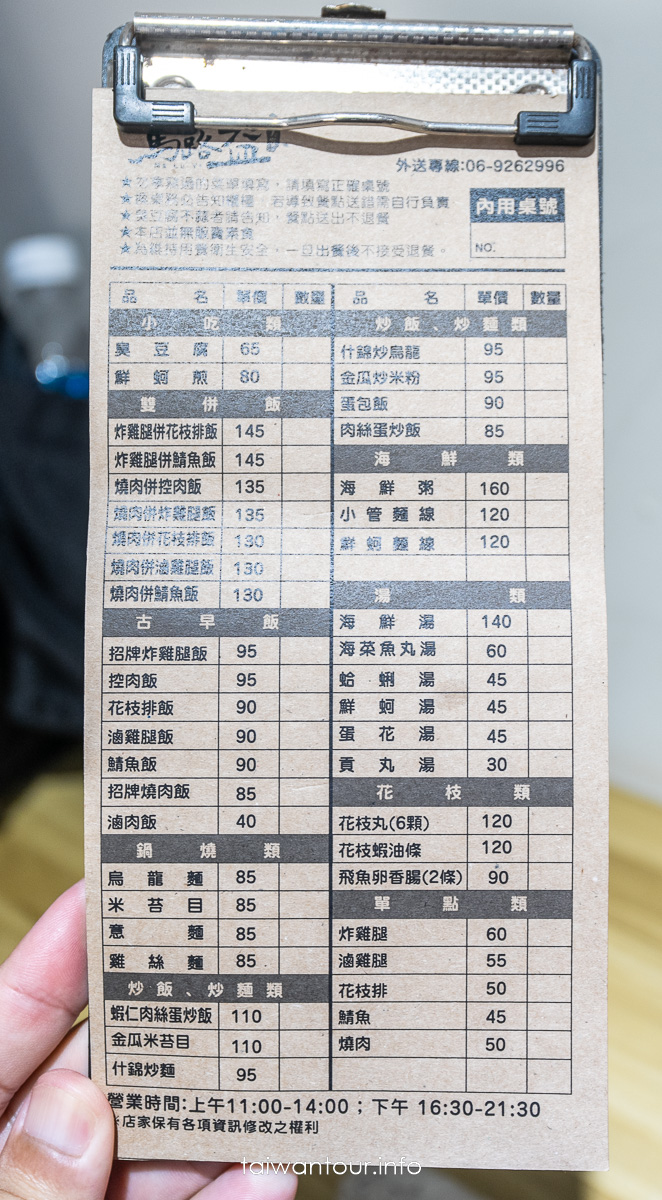 馬路益
外送專線:06-9262996
請填寫正確桌號
若導致餐點送錯需自行負責
臭豆腐不辣者請告知，餐點送出不退餐
★本店並無販賣素食
一旦出餐後不接受退餐。
內用桌號
NO.
品名 單價 數量
小吃類
臭豆腐 65
鮮蚵煎 80
雙併飯
炸雞腿併花枝排飯 145
炸雞腿併鯖魚飯 145
燒肉併控肉飯 135
燒肉併炸雞腿飯 135
燒肉併花枝排飯 130
燒肉併滷雞腿飯 130
燒肉併鯖魚飯 130
古早飯
招牌炸雞腿飯 95
控肉飯 95
花枝排飯 90
滷雞腿飯 90
鯖魚飯 90
招牌燒肉飯 85
滷肉飯 40
鍋燒類
烏龍麵 85
米苔目 85
意麵 85
雞絲麵 85
炒飯、炒麵類
蝦仁肉絲蛋炒飯 110
金瓜米苔目 110
什錦炒麵 95
品名 單價 數量
炒飯、炒麵類
什錦炒烏龍 95
金瓜炒米粉 95
蛋包飯 90
肉絲蛋炒飯 85
海鮮類
海鮮粥 160
小管麵線 120
鮮蚵麵線 120
湯類
海鮮湯 140
海菜魚丸湯 60
蛤蜊湯 45
鮮蚵湯 45
蛋花湯 45
貢丸湯 30
花枝類
花枝丸(6顆) 120
花枝蝦油條 120
飛魚卵香腸(2條) 90
單點類
炸雞腿 60
滷雞腿 55
花枝排 50
鯖魚 45
燒肉 50
營業時間:上午11:00-14:00；下午 16:30-21:30
※店家保有各項資訊修改之權利
taiwantour.info